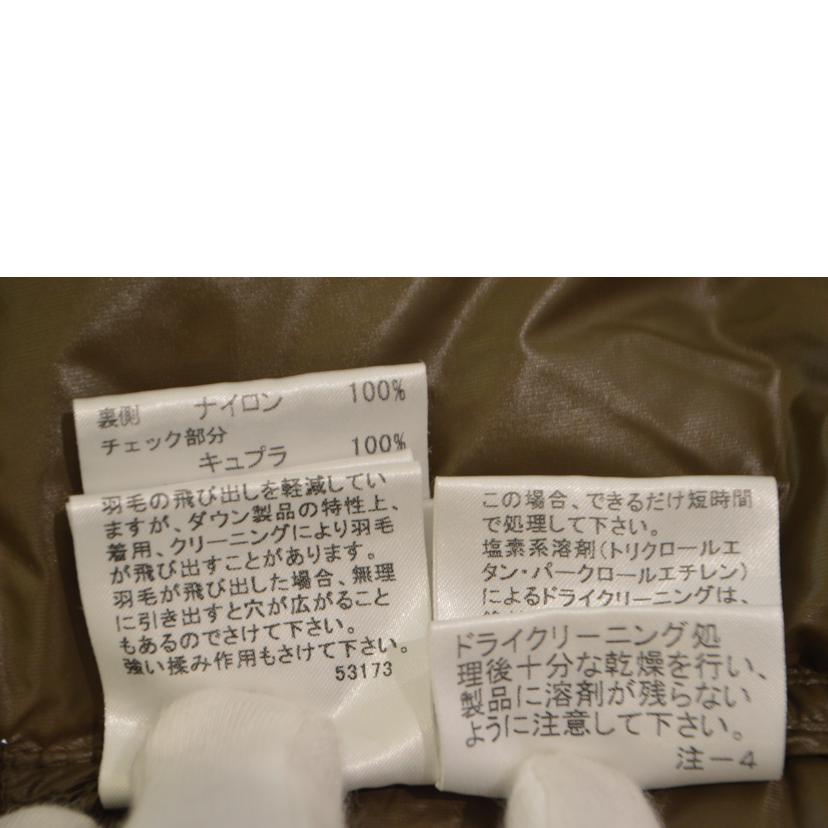 裏側 ナイロン 100%
チェック部分
キュプラ 100%
羽毛の飛び出しを軽減してい
ますが、ダウン製品の特性上、
着用、クリーニングにより羽毛
が飛び出すことがあります。
羽毛が飛び出した場合、無理
に引き出すと穴が広がること
もあるのでさけて下さい。
強い揉み作用もさけて下さい。
53173
この場合、できるだけ短時間
で処理して下さい。
塩素系溶剤(トリクロールエ
タン・パークロールエチレン)
によるドライクリーニングは、
ドライクリーニング処
理後十分な乾燥を行い、
製品に溶剤が残らない
ように注意して下さい。
注-4